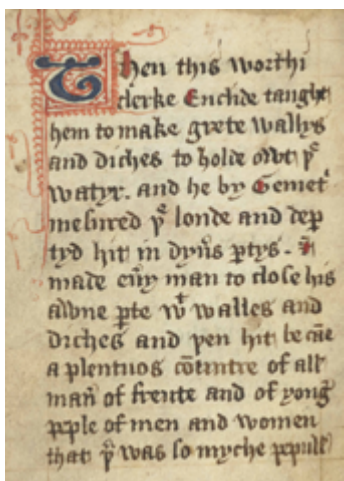 Then this worthi
clerke Euclide taught
hem to make grete wallys
and diches to holde owt þe
watyr. and he by Gemetr̄
mesured þe londe and dep
tyd hit in dyūs ptys. &
made eūy man to close his
awne pte wt walles and
diches and þen hit be cāe
a plentuos cōuntre of all
man̄ of freute and of yong
pple of men and women
that þr was so myche pepull